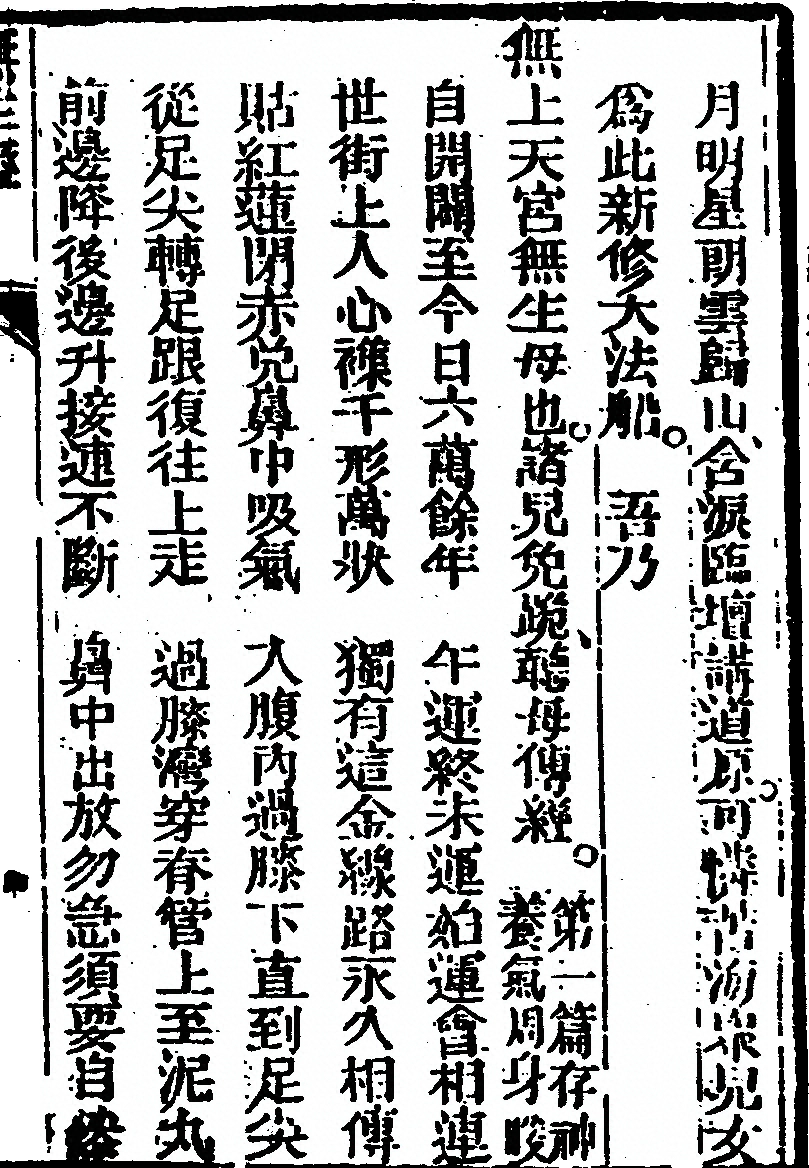 月明星朗雲歸山、含淚臨壇講道原可憐苦海衆兒女
為此新修大法船。 吾乃
無上天宮無生母也。諸兒免跪、聽母傳經。 第一篇存神
養氣周身
自開闢至今日六萬餘年 午運終未運始運會相連
世街上人心襍千形萬狀 獨有這金線路永久相傳
貼紅蓮閉赤兌鼻中吸氣 入腹內過膝下直到足尖
從足尖轉足跟復往上走 過膝灣穿脊管上至泥丸
前邊降後邊升接連不斷 鼻中出放勿急須要自然